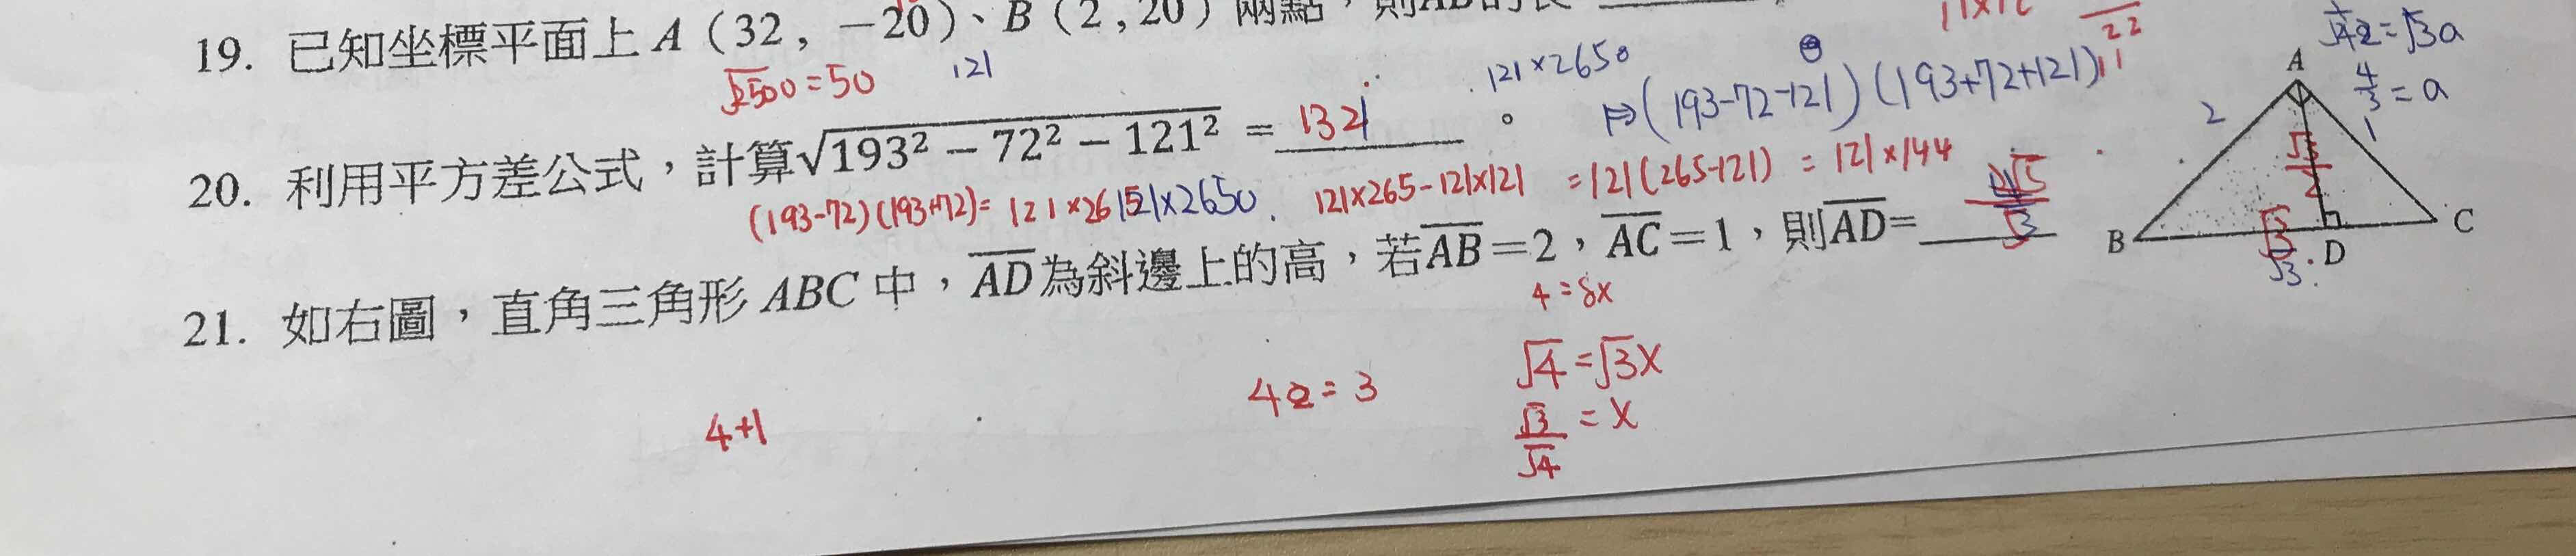 19. 已知坐標平面上 A（32，－20）、B（2，20）兩點，則AB的長
√2500=50
121
121×2650
20. 利用平方差公式，計算√193² − 72² − 121² = 132 。
⇒(193-72-121)(193+72+121)
(193-72)(193+72)= 121×265
121×2650. 121×265-121×121 =121(265-121) = 121×144
21. 如右圖，直角三角形 ABC 中，AD為斜邊上的高，若AB＝2，AC＝1，則AD=
4=8x
√4=√3x
√3/√4 = x
4a=3
4+1
22
11
=√3a
4/3=a
A
2
1
B
C
D
√3